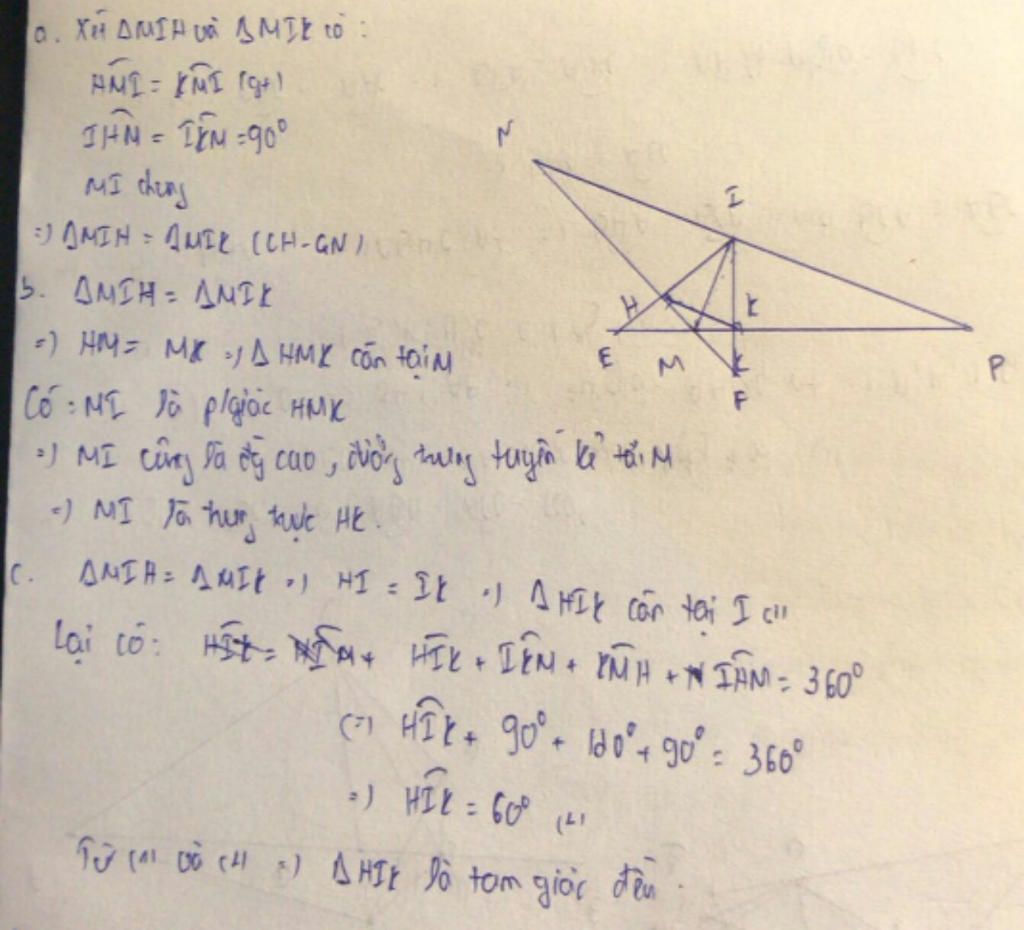 a. Xét ΔMIH và ΔMIK có:
HMI = KMI (gt)
IHM = IKM = 90°
MI chung
=) ΔMIH = ΔMIK (CH-GN)
b. ΔMIH = ΔMIK
=) HM = MK =) ΔHMK cân tại M
Có: MI là p/giác HMK
=) MI cũng là đg cao, đường trung tuyến kẻ từ M
=) MI là trung trực HK.
c. ΔMIH = ΔMIK =) HI = IK =) ΔHIK cân tại I (1)
Lại có: HIK + IKM + KMH + IHM = 360°
(=) HIK + 90° + 120° + 90° = 360°
=) HIK = 60° (2)
Từ (1) và (2) =) ΔHIK là tam giác đều.
N
I
H
K
E
M
P
F